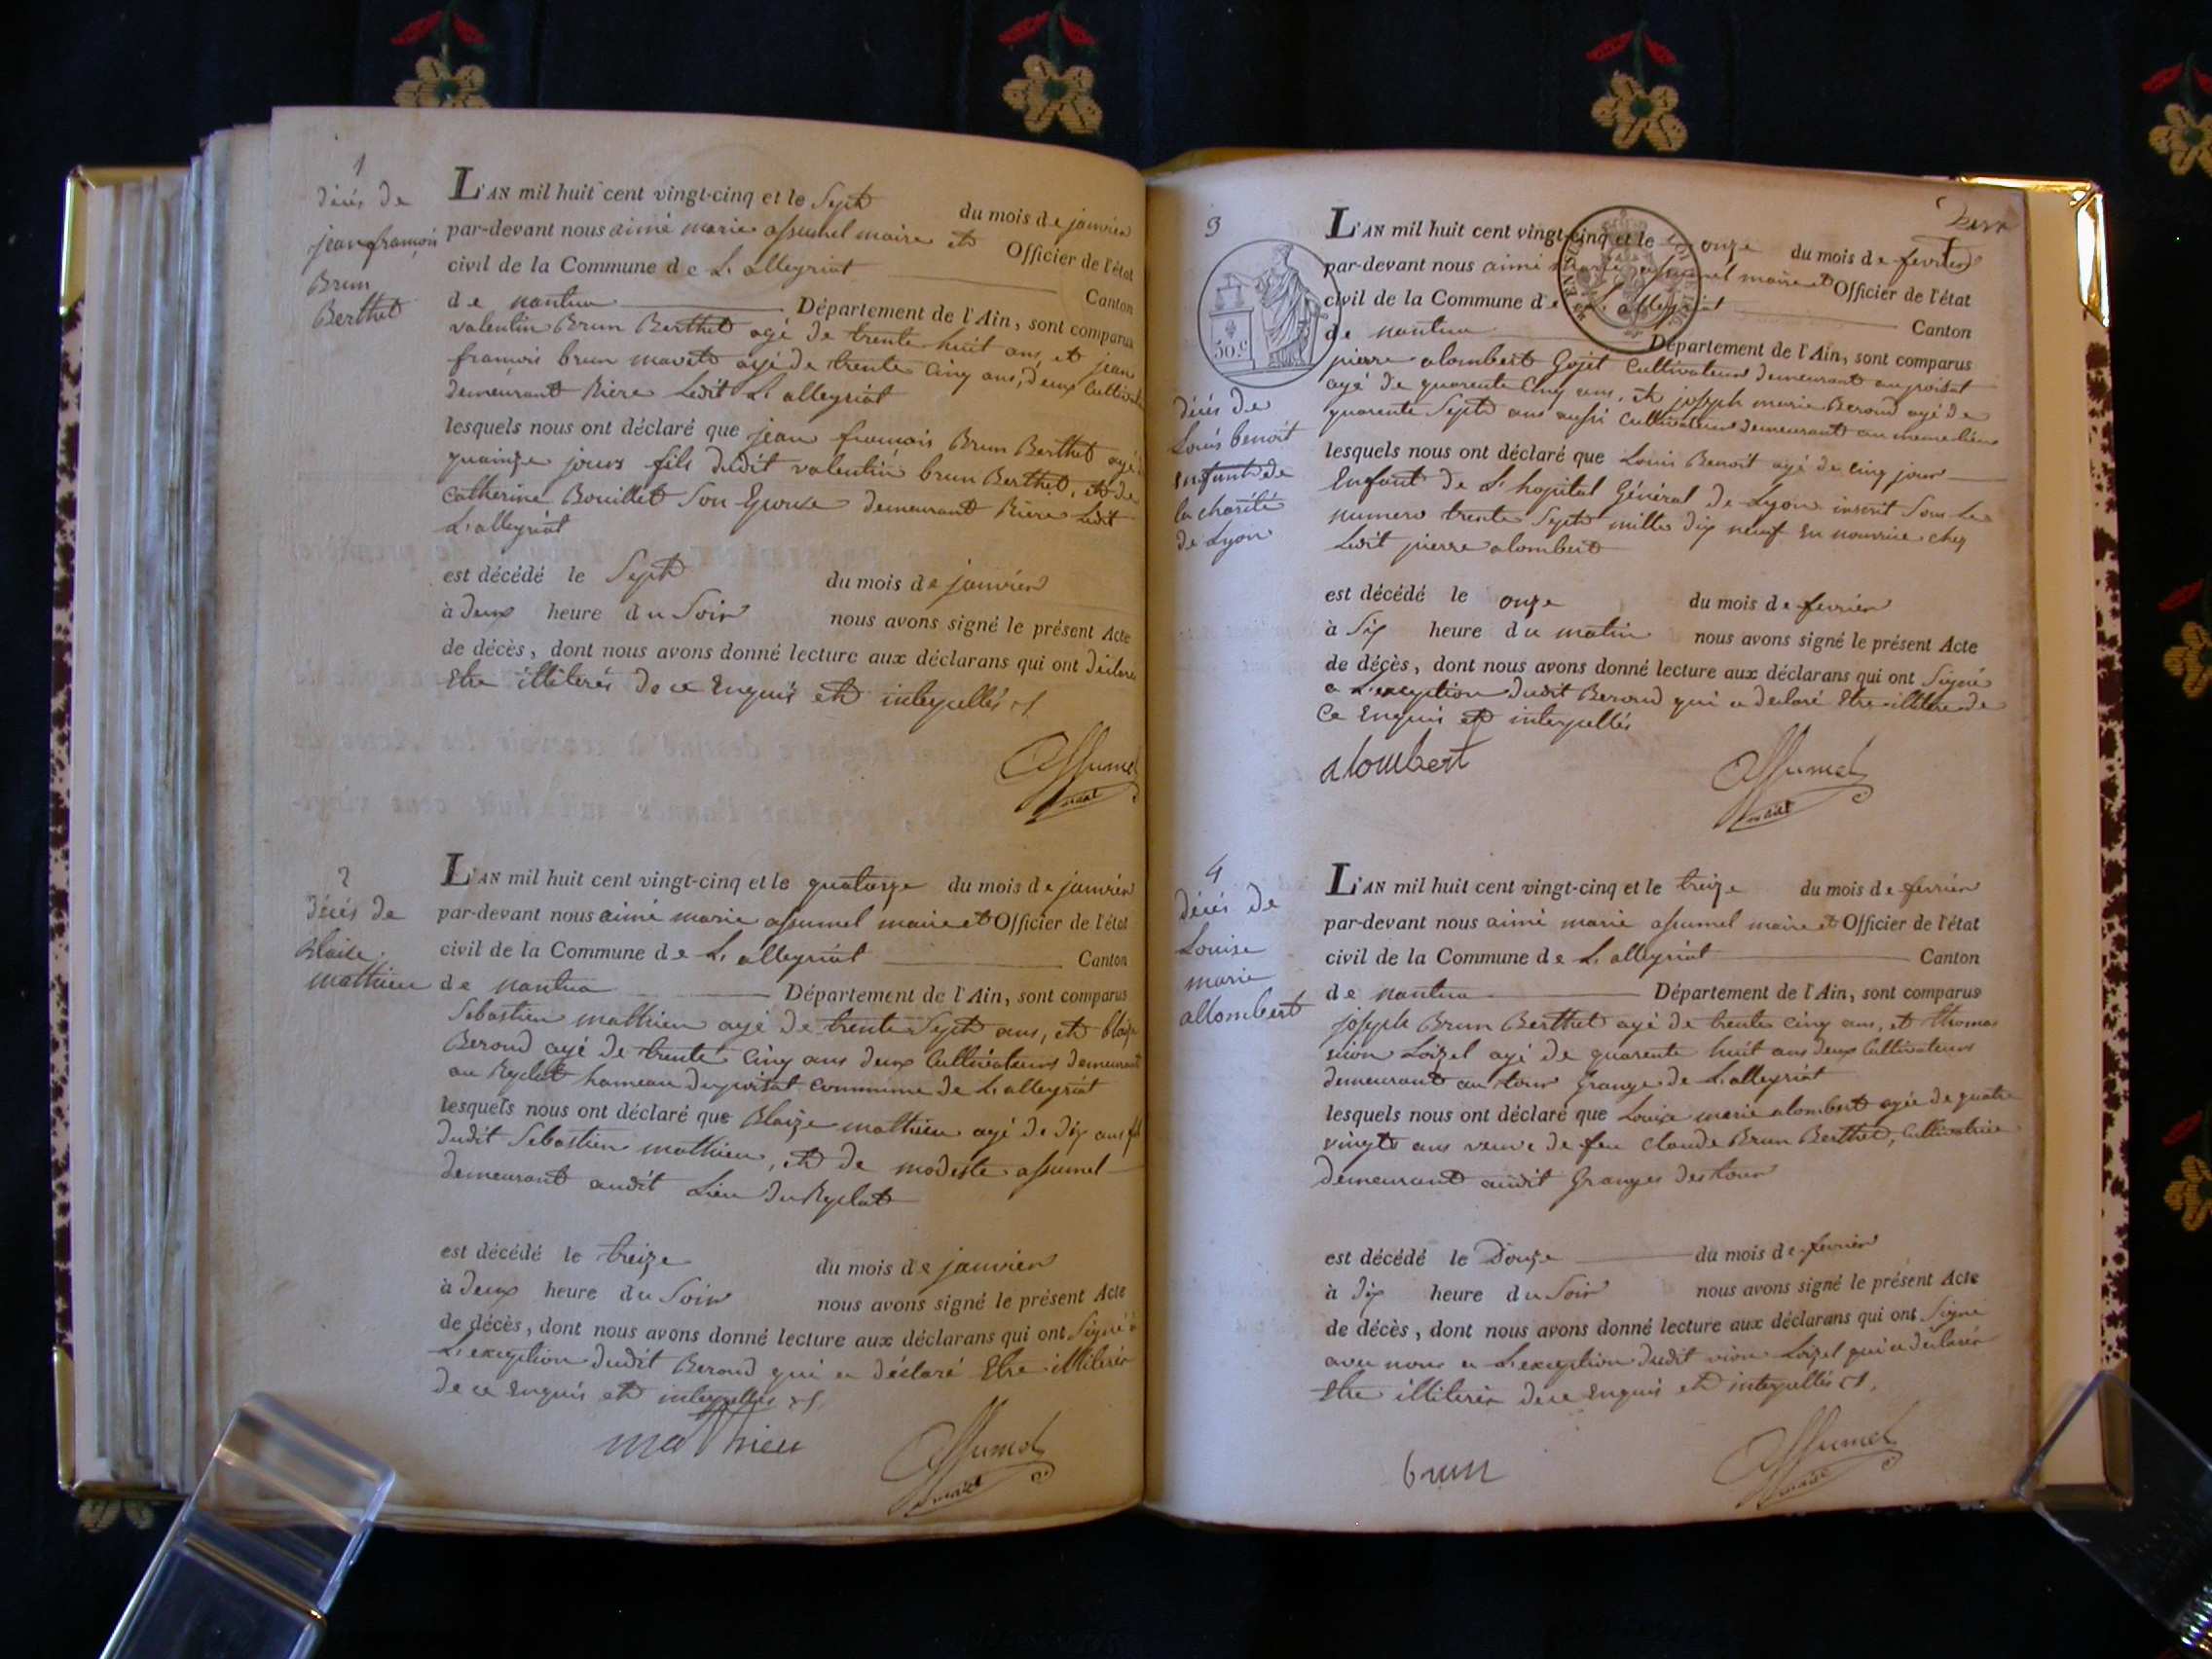 1
décés de
jean françois
Brun
Berthet
L'AN mil huit cent vingt-cinq et le Sept du mois de janvier
par-devant nous aimé marie assumel maire et Officier de l'état
civil de la Commune de L'alleyriat Canton
de nantua Département de l'Ain, sont comparus
valentin Brun Berthet agé de trente huit ans, et jean
françois brun mavet agé de trente Cinq ans, deux Cultivat
demeurant Rière Ledit L'alleyriat
lesquels nous ont déclaré que jean françois Brun Berthet agé
quainze jours fils dudit valentin brun Berthet, et de
Catherine Bouillet Son Epouse demeurant Rière Ledit
L'alleyriat
est décédé le Sept du mois de janvier
à deux heure du Soir nous avons signé le présent Acte
de décès, dont nous avons donné lecture aux déclarans qui ont déclaré
Etre illiterés de ce Enquis et interpellés
Assumel
maire
2
décés de
Blaise
mathieu
L'AN mil huit cent vingt-cinq et le quatorze du mois de janvier
par-devant nous aimé marie assumel maire et Officier de l'état
civil de la Commune de L'alleyriat Canton
de nantua Département de l'Ain, sont comparus
Sebastien mathieu agé de trente Sept ans, et blaize
Beroud agé de trente Cinq ans deux Cultivateurs demeurant
au Replat hameau du poisat commune de L'alleyriat
lesquels nous ont déclaré que Blaize mathieu agé de dix ans fils
dudit Sebastien mathieu, et de modeste assumel
demeurant audit Lieu du Replat
est décédé le treize du mois de janvier
à deux heure du Soir nous avons signé le présent Acte
de décès, dont nous avons donné lecture aux déclarans qui ont Signé à
L'exception dudit Beroud qui a déclaré Etre illiterér
de ce Enquis et interpellés
mathieu
Assumel
maire
3
50.c
décés de
Louis benoit
enfant de
la charité
de Lyon
L'AN mil huit cent vingt-cinq et le onze du mois de fevrier
par-devant nous aimé marie assumel maire et Officier de l'état
civil de la Commune de L'alleyriat Canton
de nantua Département de l'Ain, sont comparus
pierre alombert Gojet Cultivateur demeurant au poisat
agé de quarente Cinq ans, et joseph marie Beroud agé de
quarente Sept ans aussi Cultivateur demeurant au meme lieu
lesquels nous ont déclaré que Louis Benoit agé de cinq jour
Enfant de L'hopital Général de Lyon inscrit Sous Le
numero trente Sept mille dix neuf en nourrice chez
Ledit pierre alombert
est décédé le onze du mois de fevrier
à Six heure du matin nous avons signé le présent Acte
de décès, dont nous avons donné lecture aux déclarans qui ont Signé
a L'exception dudit Beroud qui a declaré Etre illitere de
Ce Enquis et interpellés
alombert
Assumel
maire
4
décés de
Louise
marie
allombert
L'AN mil huit cent vingt-cinq et le treize du mois de fevrier
par-devant nous aimé marie assumel maire et Officier de l'état
civil de la Commune de L'alleyriat Canton
de nantua Département de l'Ain, sont comparus
joseph Brun Berthet agé de trente cinq ans, et thomas
vion Loizel agé de quarente huit ans deux Cultivateurs
demeurant au tour Grange de L'alleyriat
lesquels nous ont déclaré que Louise marie alombert agée de quatre
vingts ans veuve de feu Claude Brun Berthet, Cultivatrice
demeurant audit Granges des tour
est décédé le Douze du mois de fevrier
à dix heure du Soir nous avons signé le présent Acte
de décès, dont nous avons donné lecture aux déclarans qui ont Signé
avec nous a L'exception dudit vion Loizel qui a déclarér
Etre illiterér de ce Enquis et interpellés
brun
Assumel
maire